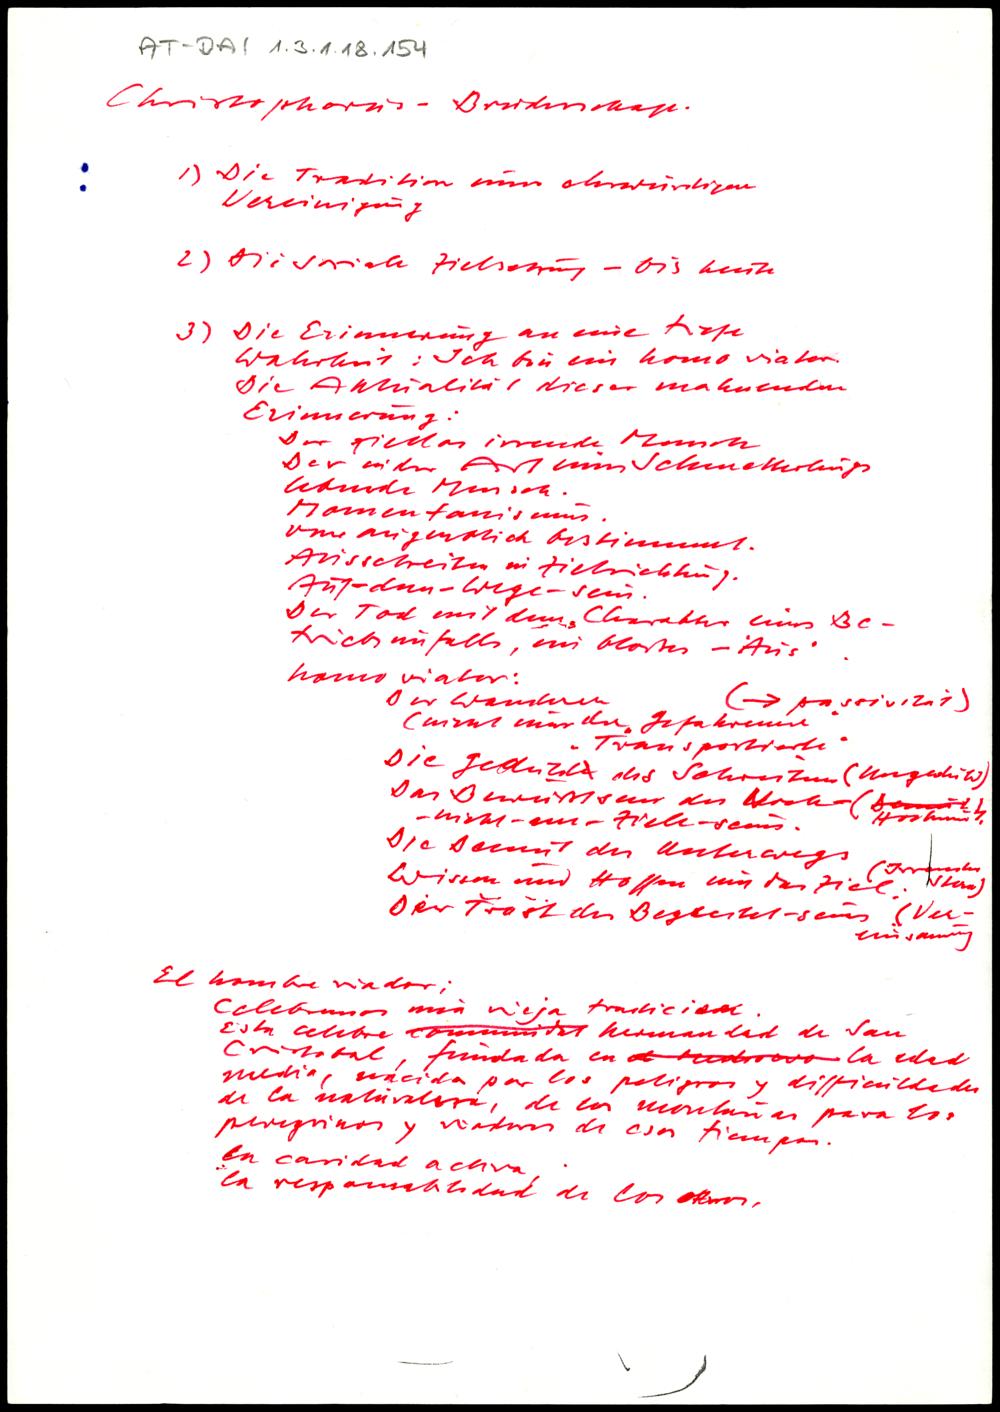 AT-DAI 1.3.1.18.154
Christophorus - Bruderschaft.
1) Die Tradition einer ehrwürdigen
Vereinigung
2) Die soziale Zielsetzung - bis heute
3) Die Erinnerung an eine tiefe
Wahrheit: Ich bin ein homo viator.
Die Aktualität dieser mahnenden
Erinnerung:
Der ziellos irrende Mensch
Der in der Art eines Schmetterlings
lebende Mensch.
Momentanismus.
vom augenblick bestimmt.
Ausschreiten in Zielrichtung.
Auf-dem-Wege-sein.
Der Tod mit dem Charakter eines Be-
triebsunfalls, ein bloßes - "Aus"
homo viator:
Der Wanderer (→ passivität)
(nicht nur der "Gefahrene"
"Transportierte"
Die Geduld des Schreitens (Ungeduld)
Das Bewußtsein des Noch- (Demut Hochmut)
-nicht-am-Ziele-seins.
Die Demut des Unterwegs
Wissen und Hoffen um das Ziel. (Irrender Stern)
Der Trost des Begleitet-seins (Ver-
einsamung
El hombre viador;
Celebramos una vieja tradición.
Esta celebre comunidad hermandad de San
Cristobal, fundada en la edad
media, nacida por los peligros y difficuldades
de la naturaleza, de las montañas para los
peregrinos y viadores de esos tiempos.
La caridad activa,
la responsabilidad de los otros.